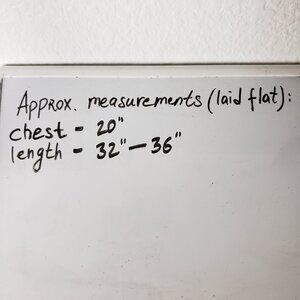 Approx. measurements (laid flat):
chest - 20"
length - 32" — 36"